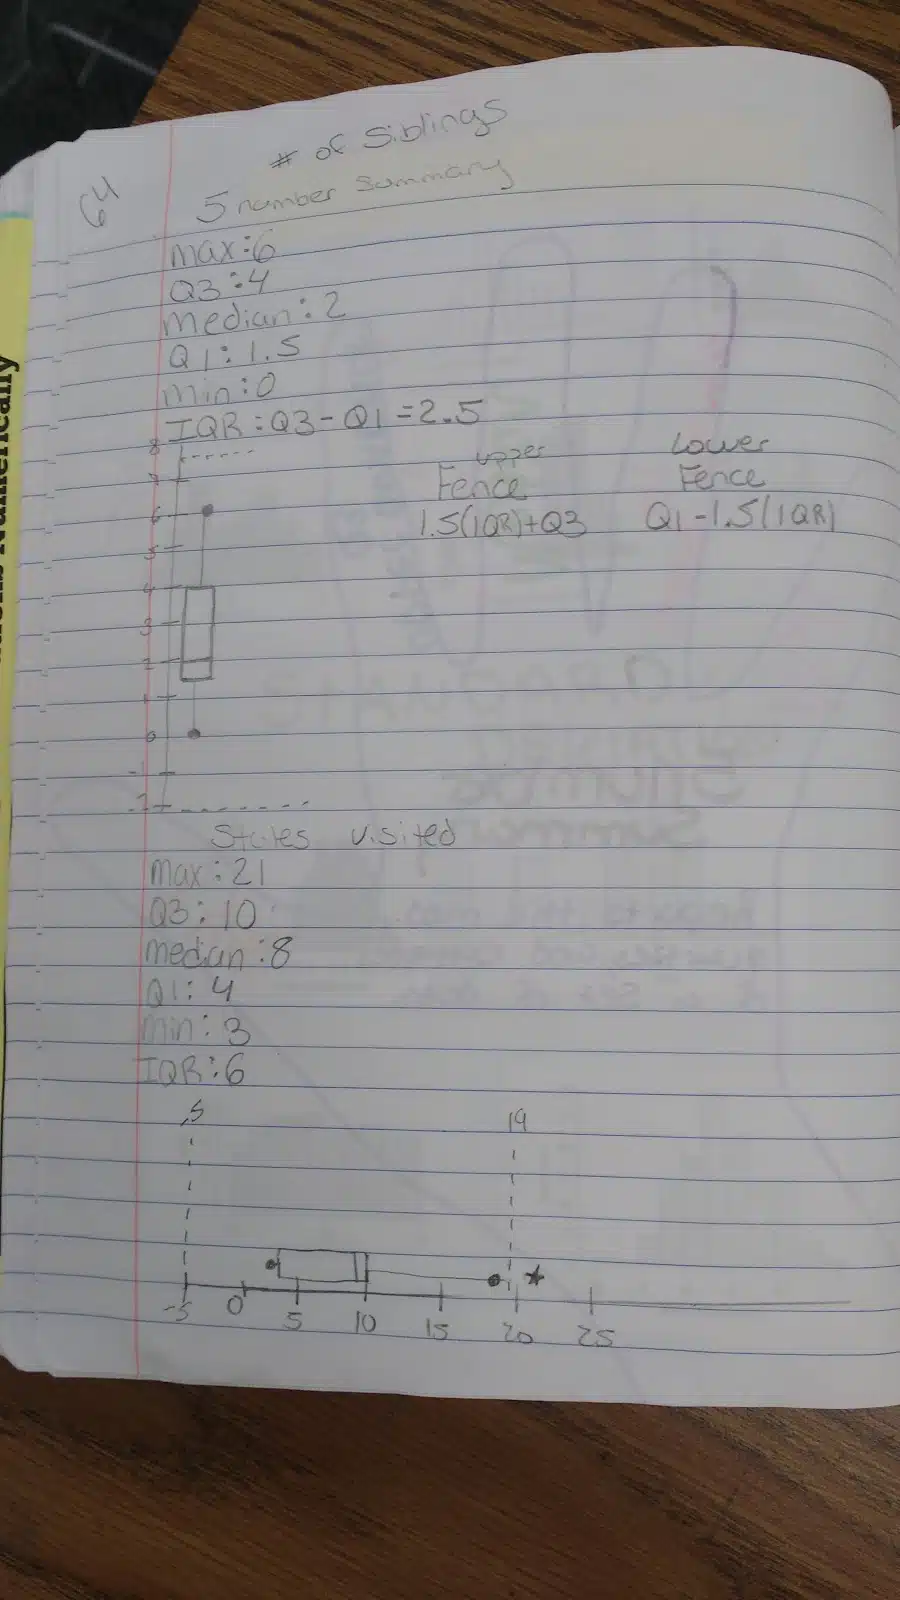 64
# of Siblings
5 number Summary
max:6
Q3:4
Median:2
Q1:1.5
Min:0
IQR:Q3-Q1=2.5
upper
Fence
1.5(IQR)+Q3
Lower
Fence
Q1-1.5(IQR)
8
7
6
5
4
3
2
1
0
-1
-2
States visited
Max:21
Q3:10
Median:8
Q1:4
Min:3
IQR:6
-5
19
-5 0 5 10 15 20 25
Numerically